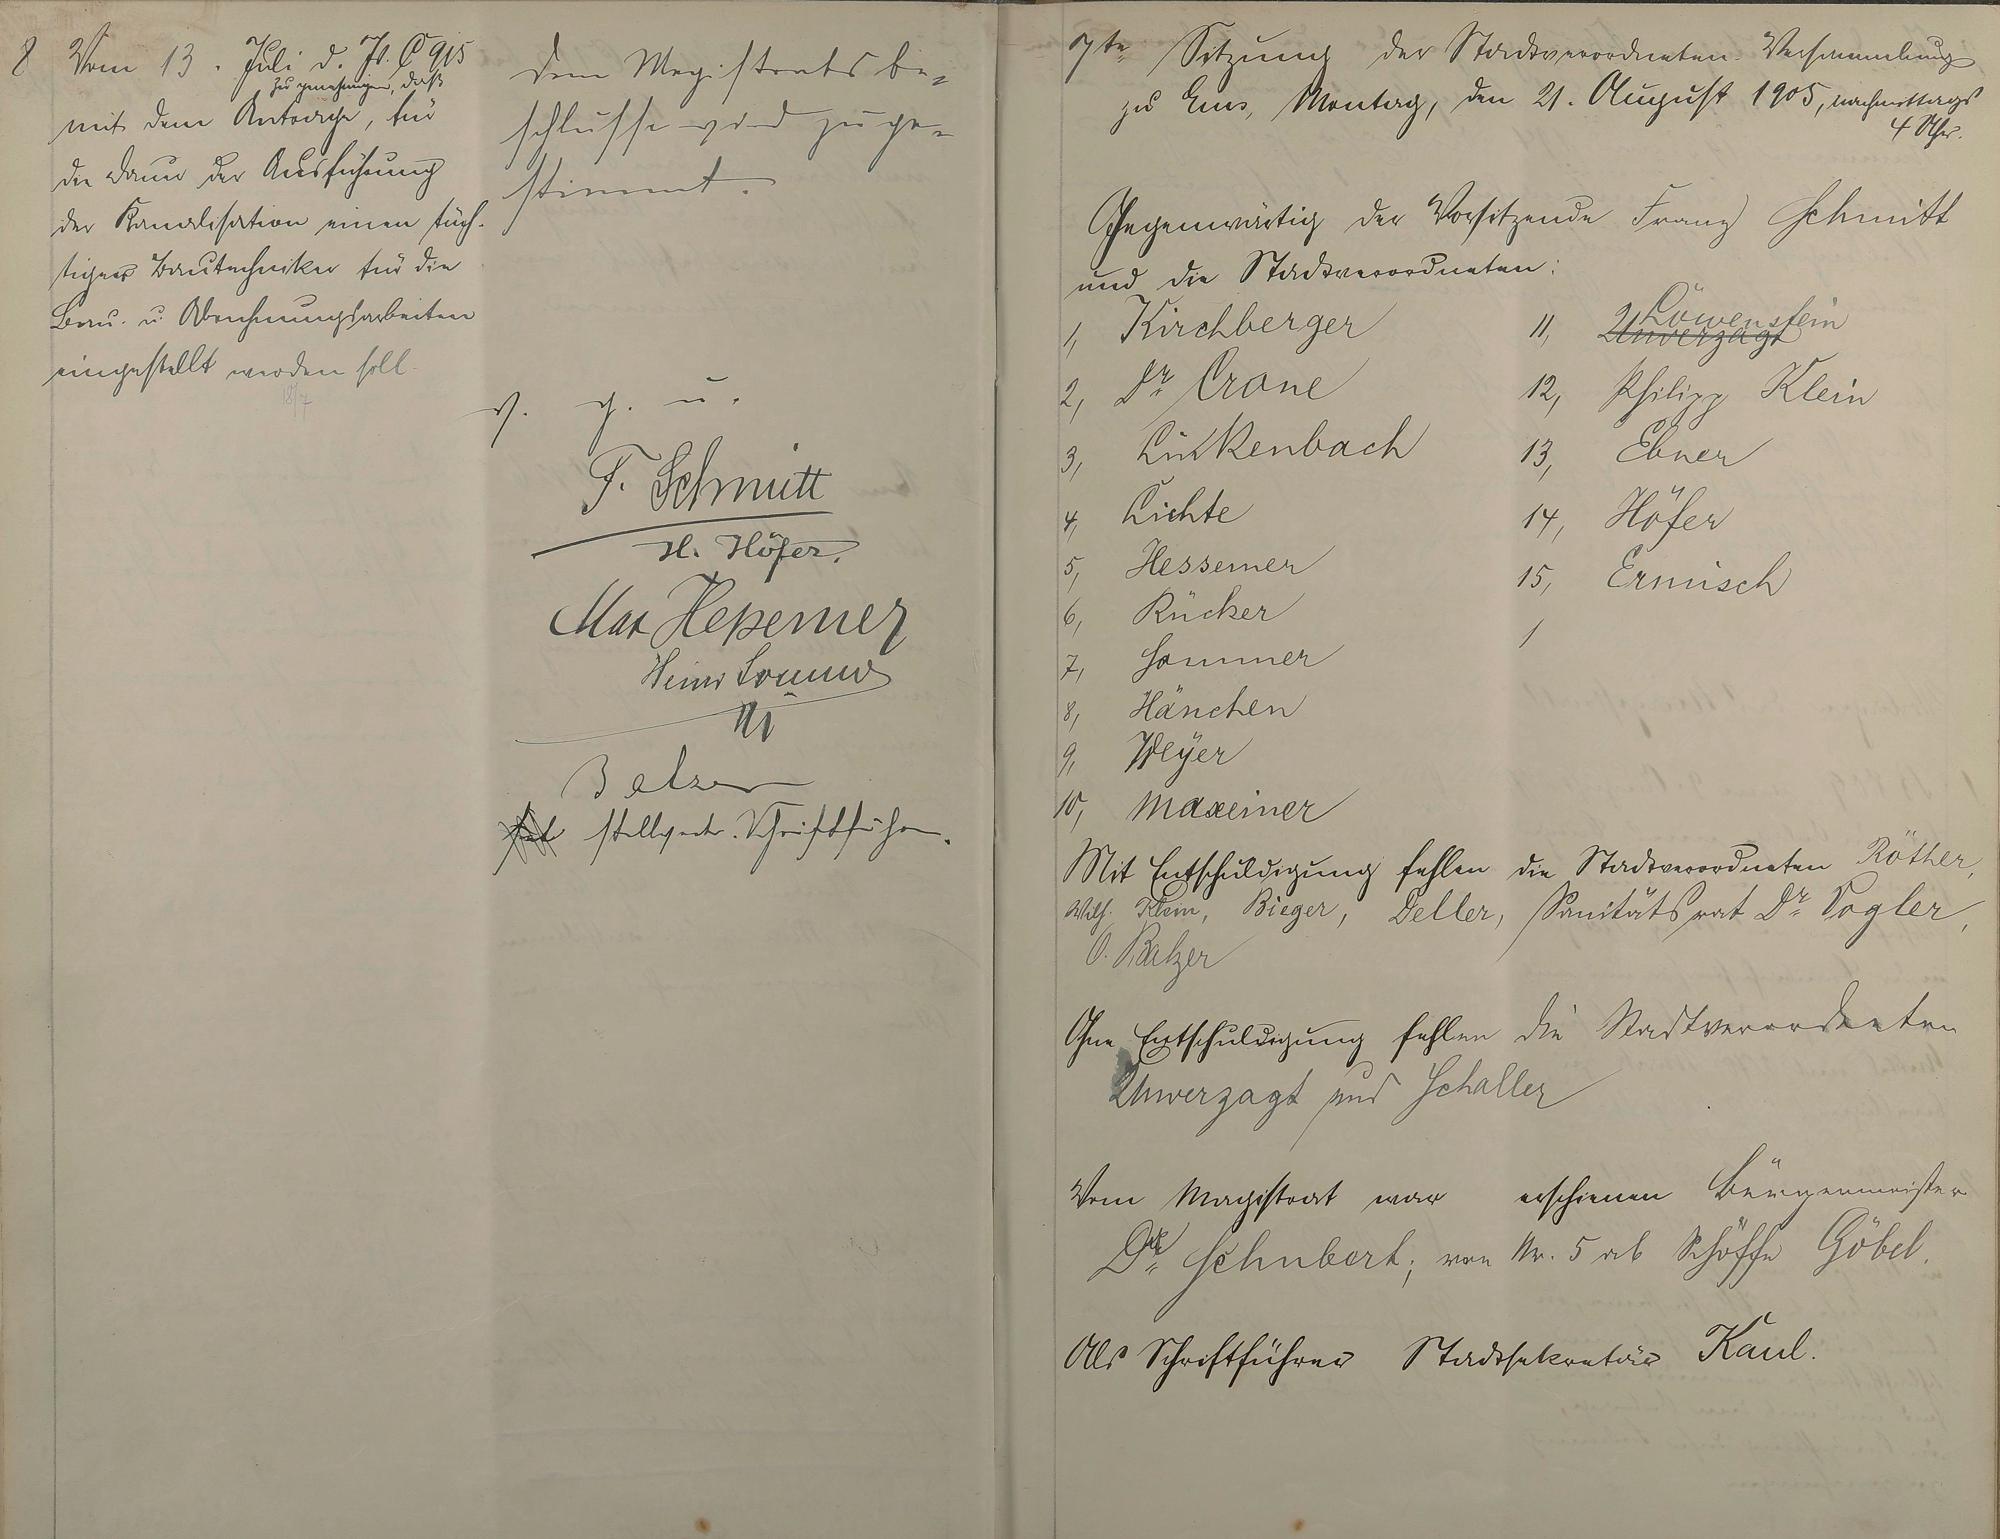 8 Vom 13. Juli d. Js. C 915
zu genehmigen, daß
mit dem Antrage, für
die Dauer der Ausführung
der Kanalisation einen tüch-
tigen Bautechniker für die
Bau- u. Abrechnungsarbeiten
eingestellt werden soll.
18/7
Dem Magistratsbe-
schlusse wird zuge-
stimmt.
v. g. u.
F. Schmitt
H. Höfer.
Max Hessemer
Heinr Sommer
Balzer
stellvertr. Schriftführer.
7te Sitzung der Stadtverordneten-Versammlung
zu Ems, Montag, den 21. August 1905, nachmittags
4 Uhr.
Gegenwärtig der Vorsitzende Franz Schmitt
und die Stadtverordneten:
1, Kirchberger
2, Dr Crane
3, Linkenbach
4, Lichte
5, Hessemer
6, Rücker
7, Sommer
8, Hänchen
9, Weyer
10, Maxeiner
11, Unverzagt Löwenstein
12, Philipp Klein
13, Ebner
14, Höfer
15, Ermisch
1
Mit Entschuldigung fehlen die Stadtverordneten Röther,
Wilh. Klein, Bieger, Deller, Sanitätsrat Dr Vogler,
O. Balzer
Ohne Entschuldigung fehlen die Stadtverordneten
Unverzagt und Schaller
Vom Magistrat war erschienen Bürgermeister
Dr Schubert; von Nr. 5 ab Schöffe Göbel.
Als Schriftführer Stadtsekretär Kaul.